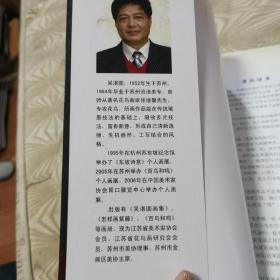 吴湛圆，1952年生于苏州，
1964年毕业于苏州沧浪美专，曾
师从著名花鸟画家张继馨先生，
专攻花鸟，所画作品能在传统笔
墨技法的基础上，吸收多元技
法，富有新意，形成自己清新逸
丽、生机盎然、工写结合的风
格。
1995年在杭州苏东坡纪念馆
举办了《东坡诗意》个人画展，
2005年在苏州举办《百鸟和鸣》
个人画展，2006年在中国美术家
协会周口展览中心举办个人画
展。
出版有《吴湛圆画集》、
《怎样画紫藤》、《百鸟和鸣》
等画册，现为江苏省美术家协会
会员，江苏省花鸟画研究会会
员，苏州市美协理事，苏州市金
阊区美协主席。